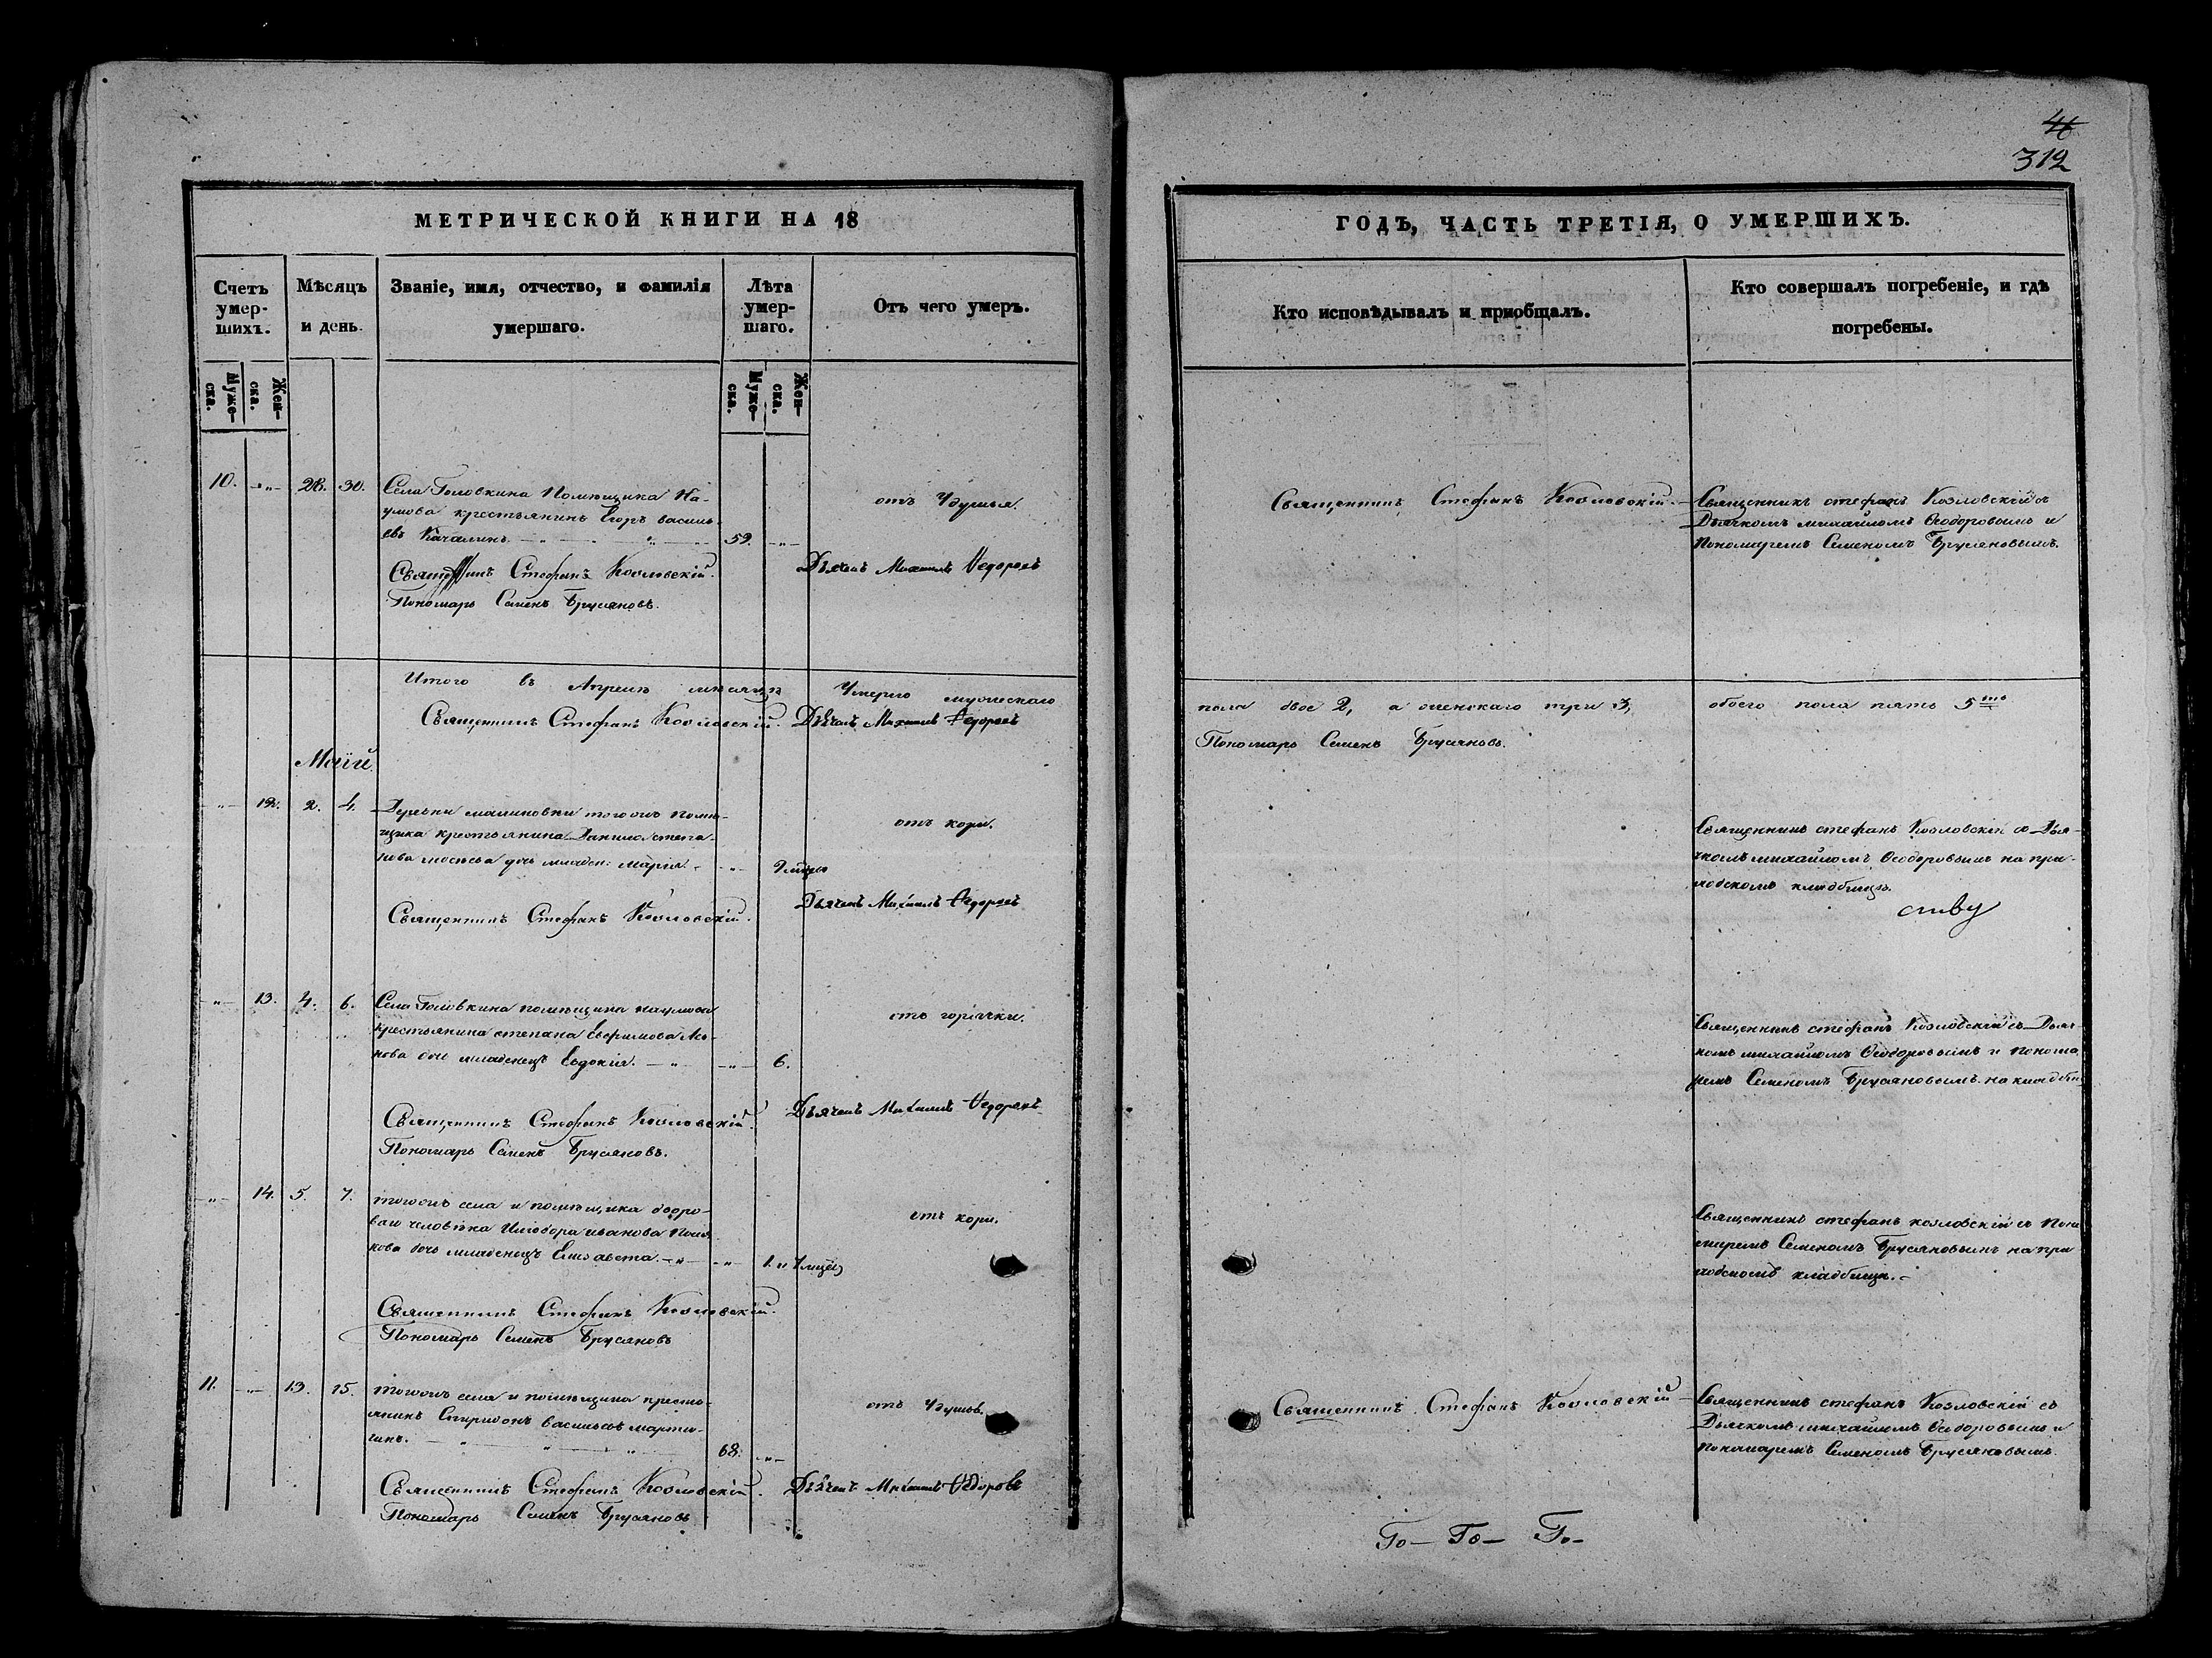 46
312
МЕТРИЧЕСКОЙ КНИГИ НА 18
ГОДЪ, ЧАСТЬ ТРЕТІЯ, О УМЕРШИХЪ.
Счетъ умер-
шихъ.
Мѣсяцъ
и день.
Званіе, имя, отчество, и фамилія
умершаго.
Лѣта
умер-
шаго.
Отъ чего умеръ.
Кто исповѣдывалъ и пріобщалъ.
Кто совершалъ погребеніе, и гдѣ
погребены.
Муже-
ска.
Жен-
ска.
Муже-
ска.
Жен-
ска.
10. -„- 28. 30. Села Головкина Помѣщика На-
умова крестьянинъ Егоръ василь-
евъ Качалинъ. 59. -„-
отъ Удушья.
Священникъ Стефанъ Козловскій.
Священникъ стефанъ Козловскій съ
Дьячкомъ михаиломъ Ѳеодоровымъ и
Пономаремъ Семеномъ Брусяновымъ.
Священникъ Стефанъ Козловскій. Дьячекъ Михаилъ Ѳедоровъ
Пономарь Семенъ Брусяновъ.
Итого въ Апрелѣ мѣсяцѣ Умерло мужескаго
пола двое 2, а женскаго три 3, обоего пола пять 5
Священникъ Стефанъ Козловскій. Дьячекъ Михаилъ Ѳедоровъ
Пономарь Семенъ Брусяновъ.
Маій
-„- 12. 2. 4. Деревни малиновки тогожъ помѣ-
щика крестьянина Данила степа-
нова дочь младен: марія. -„-
отъ кори.
Священникъ стефанъ Козловскій съ Дья-
чкомъ михаиломъ Ѳеодоровымъ на при-
ходскомъ кладбищѣ.
Священникъ Стефанъ Козловскій. Дьячекъ Михаилъ Ѳедоровъ
-„- 13. 4. 6. Села Головкина помѣщика наумова
крестьянина степана Евфимова
дочь младенецъ Евдокія. -„- 6.
отъ горячки.
Священникъ стефанъ Козловскій съ Дьяч-
комъ михаиломъ Ѳеодоровымъ и Понома-
ремъ Семеномъ Брусяновымъ на кладби
Священникъ Стефанъ Козловскій. Дьячекъ Михаилъ Ѳедоровъ
Пономарь Семенъ Брусяновъ.
-„- 14. 5. 7. тогожъ села и помѣщика дворо-
ваго человѣка иванова
дочь младенецъ Елисавета. -„-
отъ кори.
Священникъ стефанъ козловскій съ Поно
маремъ Семеномъ Брусяновымъ на при
ходскомъ кладбищѣ.
Священникъ Стефанъ Козловскій.
Пономарь Семенъ Брусяновъ
11. -„- 13. 15. тогожъ села и помѣщика кресть-
янинъ Спиридонъ васильевъ марты-
68. -„-
отъ Удушья.
Священникъ Стефанъ Козловскій
Священникъ стефанъ Козловскій съ
Дьячкомъ михаиломъ Ѳеодоровымъ и
Пономаремъ Семеномъ Брусяновымъ.
Священникъ Стефанъ Козловскій. Дьячекъ Михаилъ Ѳедоровъ
Пономарь Семенъ Брусяновъ
Го- Го- Го-